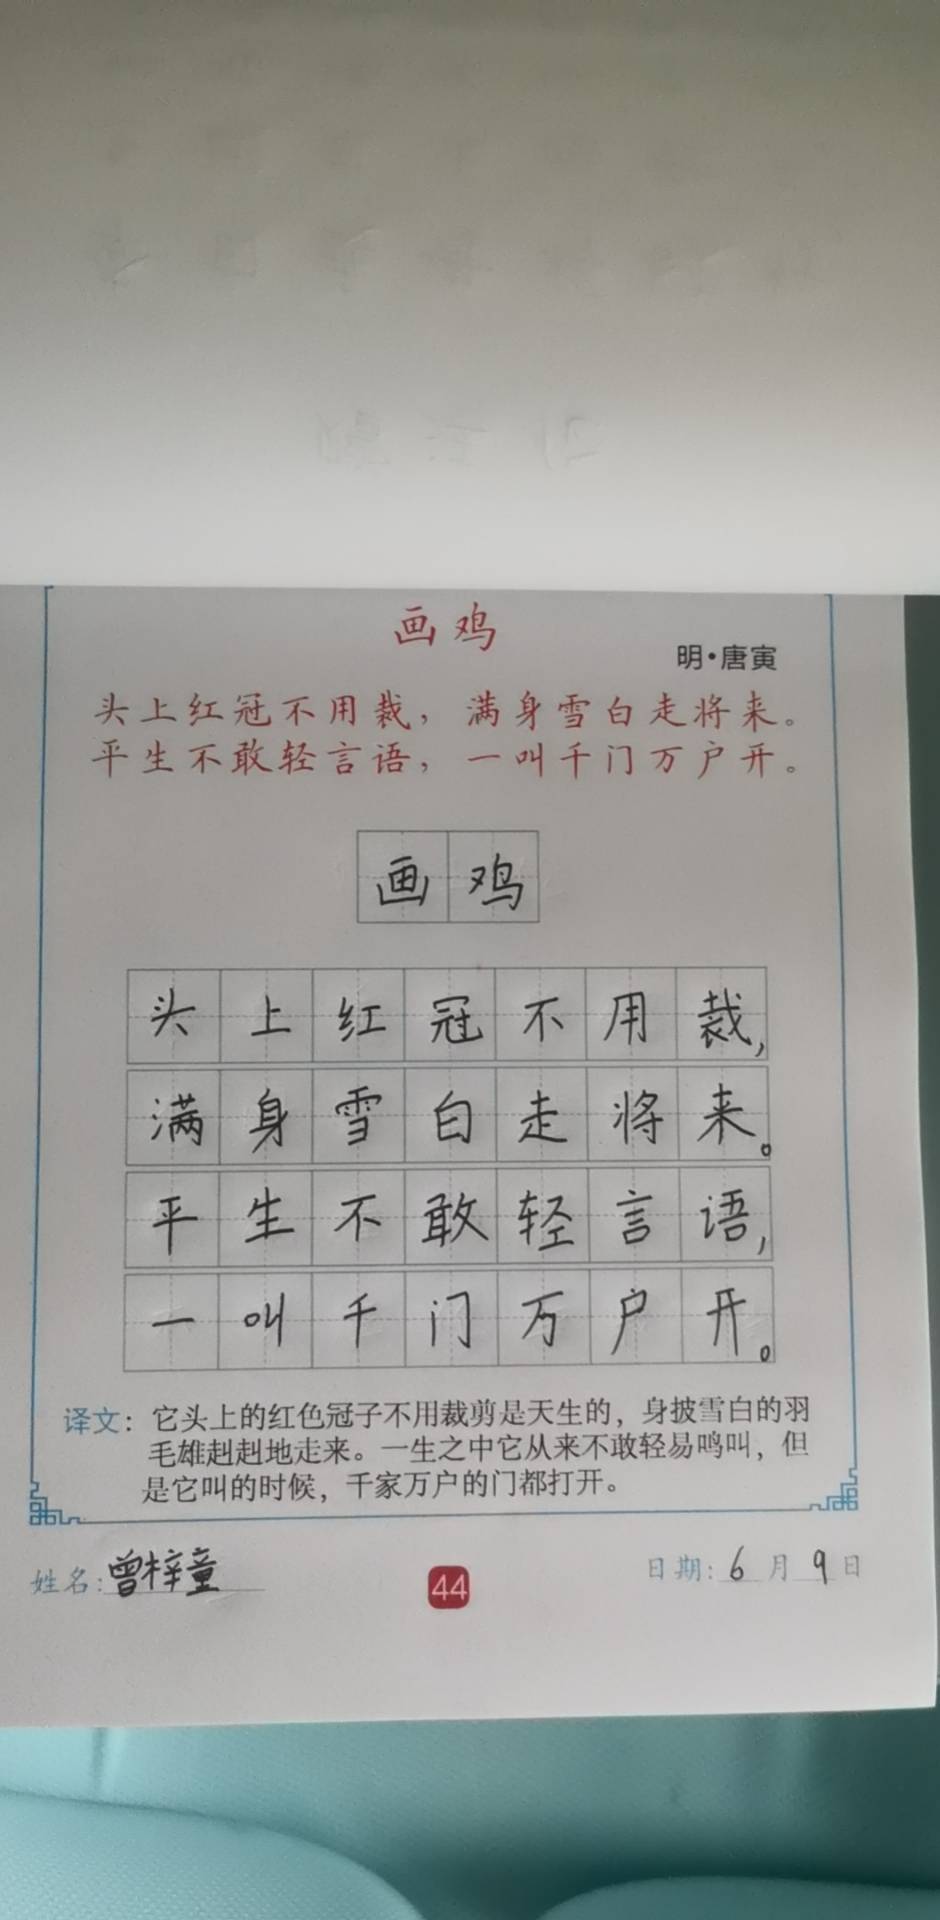 画鸡
明·唐寅
头上红冠不用裁，满身雪白走将来。
平生不敢轻言语，一叫千门万户开。
画鸡
头上红冠不用裁，
满身雪白走将来。
平生不敢轻言语，
一叫千门万户开。
译文：它头上的红色冠子不用裁剪是天生的，身披雪白的羽
毛雄赳赳地走来。一生之中它从来不敢轻易鸣叫，但
是它叫的时候，千家万户的门都打开。
姓名：曾梓童 44 日期：6月9日